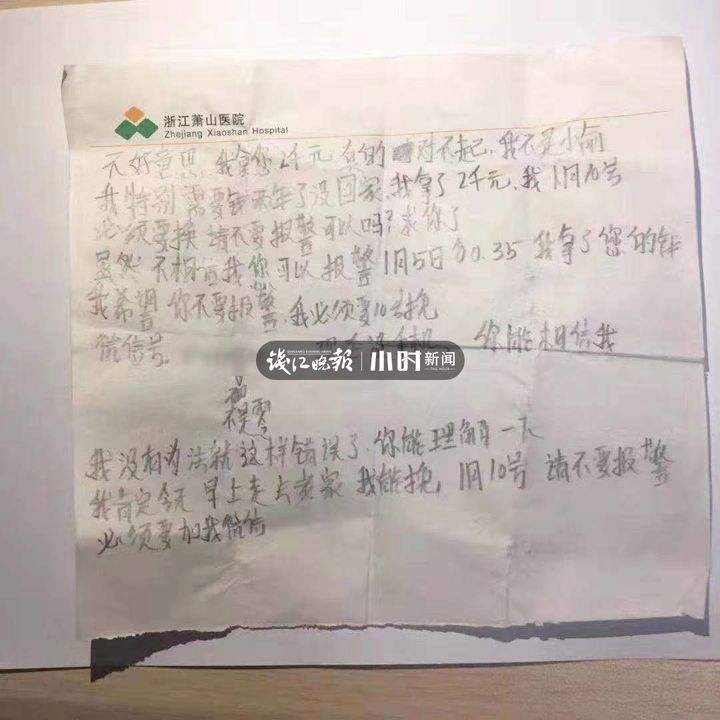 浙江萧山医院
Zhejiang Xiaoshan Hospital
不好意思,我拿您2千元 真的 对不起,我不是小偷
我特别需要钱两年了没回家,我拿了2千元,我1月10号
必须要换 请不要报警可以吗?求你了
显然 不相信我你可以报警1月5日 0.35 我拿了您的钱
我希望 你不要报警,我必须要10号挽
微信号。 你能相信我
钱江晚报
小时新闻
我没相办法就这样错误了,你能理解一下
我肯定今天 早上走去老家 我能挽 1月10号 请不要报警
必须要加我微信